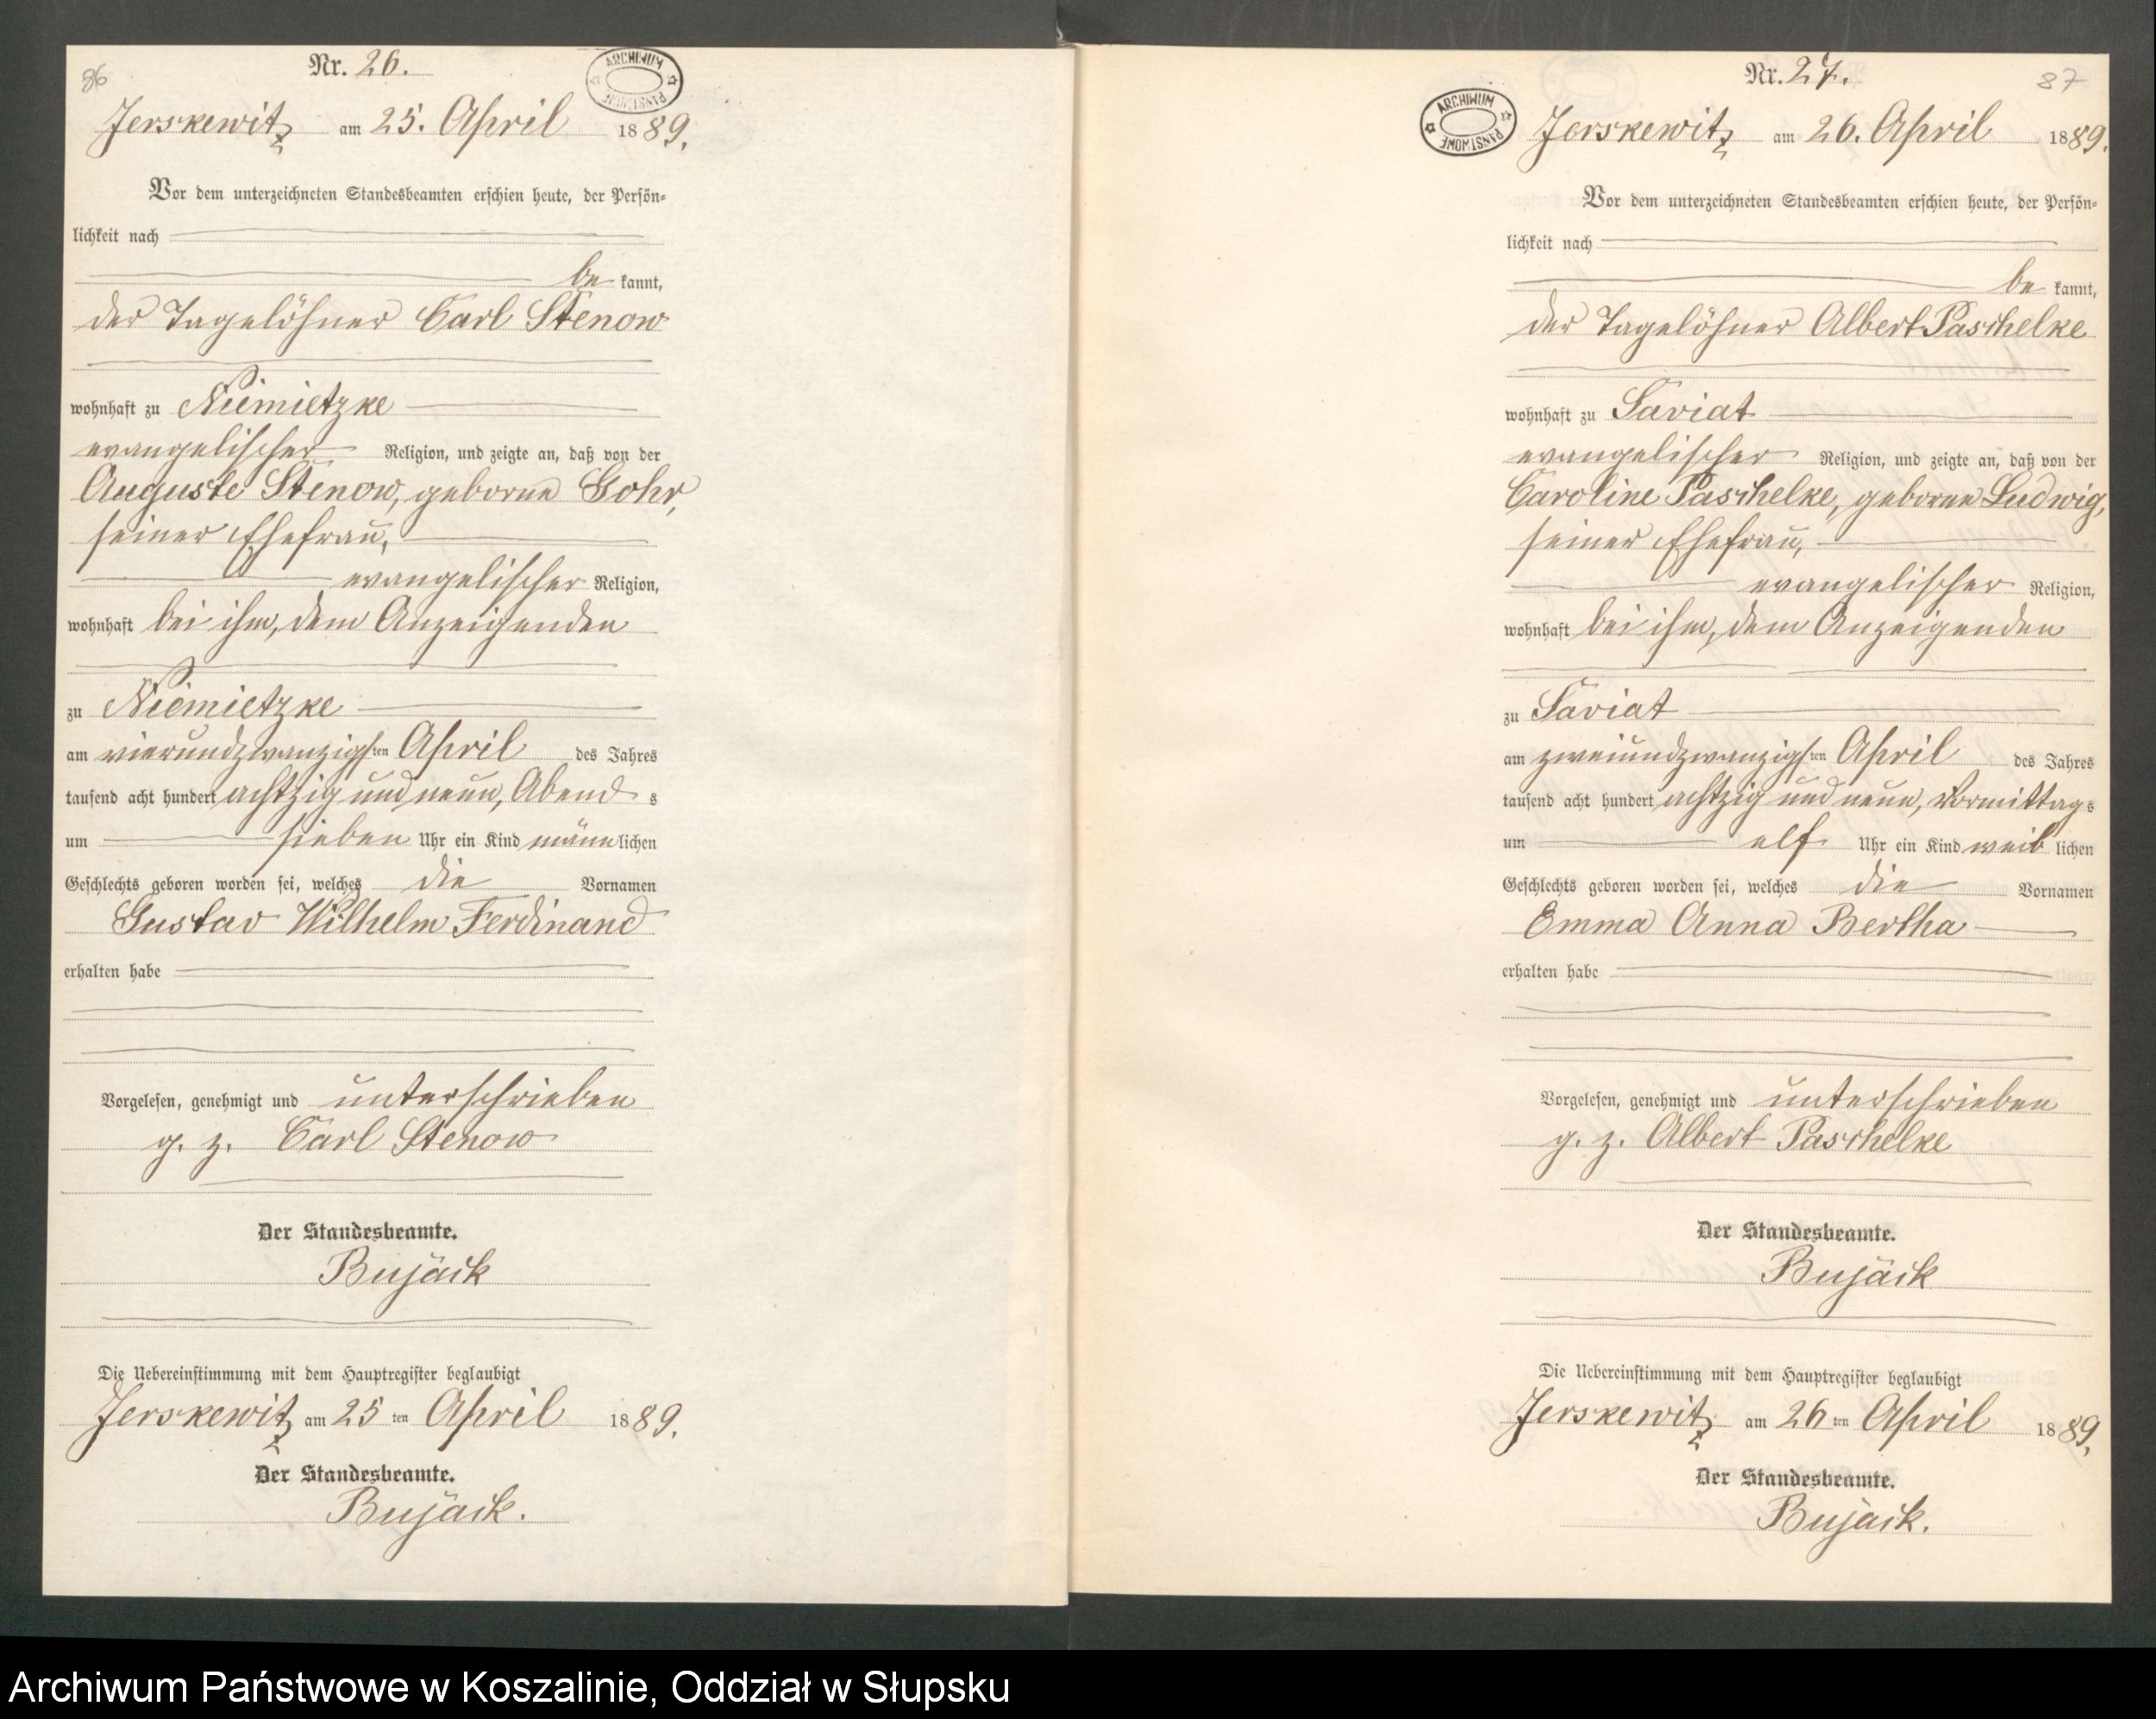 86
Nr. 26.
ARCHIWUM PAŃSTWOWE
Jerskewitz am 25. April 1889.
Vor dem unterzeichneten Standesbeamten erschien heute, der Persön-
lichkeit nach
be kannt,
der Tagelöhner Carl Stenow
wohnhaft zu Niemietzke
evangelischer Religion, und zeigte an, daß von der
Auguste Stenow, geborne Gohr,
seiner Ehefrau,
evangelischer Religion,
wohnhaft bei ihm, dem Anzeigenden
zu Niemietzke
am vierundzwanzigsten April des Jahres
tausend acht hundert achtzig und neun, Abends
um sieben Uhr ein Kind männlichen
Geschlechts geboren worden sei, welches die Vornamen
Gustav Wilhelm Ferdinand
erhalten habe
Vorgelesen, genehmigt und unterschrieben
g. z. Carl Stenow
Der Standesbeamte.
Bujäck
Die Uebereinstimmung mit dem Hauptregister beglaubigt
Jerskewitz am 25 ten April 1889.
Der Standesbeamte.
Bujäck.
Nr. 27.
87
ARCHIWUM PAŃSTWOWE
Jerskewitz am 26. April 1889.
Vor dem unterzeichneten Standesbeamten erschien heute, der Persön-
lichkeit nach
be kannt,
der Tagelöhner Albert Paschelke
wohnhaft zu Saviat
evangelischer Religion, und zeigte an, daß von der
Caroline Paschelke, geborne Ludwig,
seiner Ehefrau,
evangelischer Religion,
wohnhaft bei ihm, dem Anzeigenden
zu Saviat
am zweiundzwanzigsten April des Jahres
tausend acht hundert achtzig und neun, Vormittags
um elf Uhr ein Kind weiblichen
Geschlechts geboren worden sei, welches die Vornamen
Emma Anna Bertha
erhalten habe
Vorgelesen, genehmigt und unterschrieben
g. z. Albert Paschelke
Der Standesbeamte.
Bujäck
Die Uebereinstimmung mit dem Hauptregister beglaubigt
Jerskewitz am 26 ten April 1889.
Der Standesbeamte.
Bujäck.
Archiwum Państwowe w Koszalinie, Oddział w Słupsku